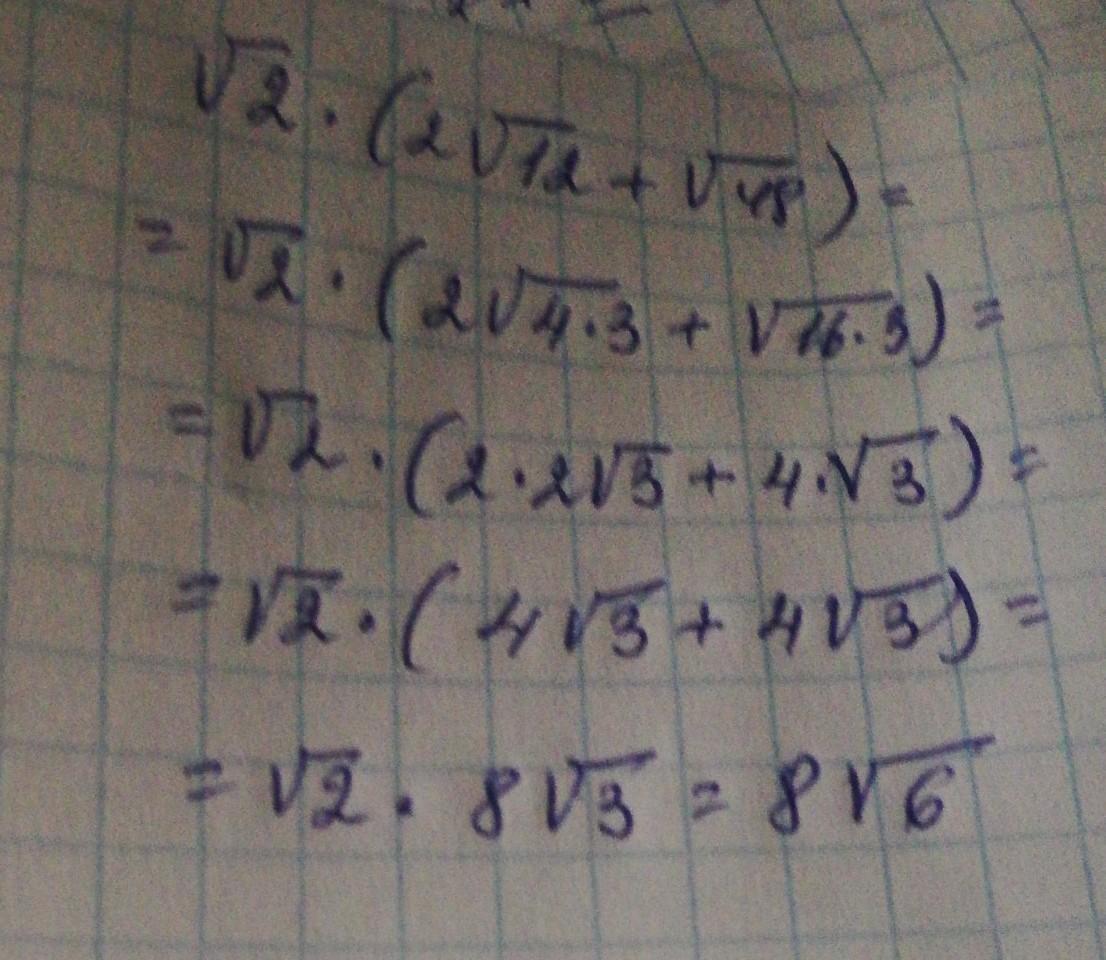 √2 · (2√12 + √48) =
= √2 · (2√4·3 + √16·3) =
= √2 · (2·2√3 + 4·√3) =
= √2 · (4√3 + 4√3) =
= √2 · 8√3 = 8√6